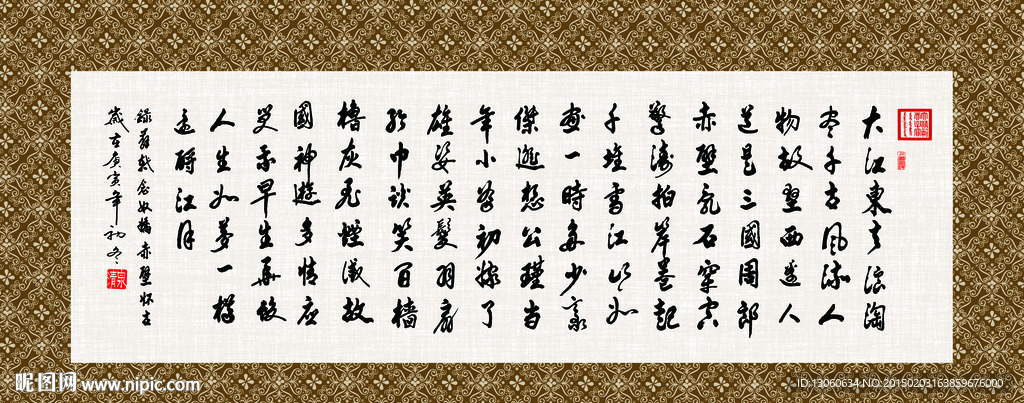 大江東去浪淘
盡千古風流人
物故壘西邊人
道是三國周郎
赤壁亂石穿空
驚濤拍岸卷起
千堆雪江山如
畫一時多少豪
傑遙想公瑾当
年小喬初嫁了
雄姿英髮羽扇
綸巾談笑间檣
櫓灰飛煙滅故
國神遊多情应
笑我早生華髮
人生如夢一樽
還酹江月
錄蘇軾念奴嬌赤壁怀古
歲在庚寅年初冬
昵图网 www.nipic.com
ID:13060634 NO:20150203163859676000